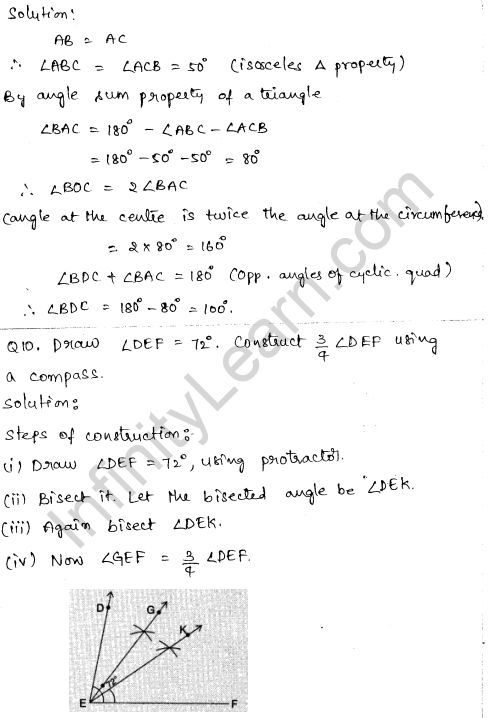 Solution:
AB = AC
∴ ∠ABC = ∠ACB = 50° (isosceles Δ property)
By angle sum property of a triangle
∠BAC = 180° - ∠ABC - ∠ACB
= 180° - 50° - 50° = 80°
∴ ∠BOC = 2∠BAC
(angle at the centre is twice the angle at the circumference)
= 2 × 80° = 160°
∠BDC + ∠BAC = 180° (opp. angles of cyclic. quad)
∴ ∠BDC = 180° - 80° = 100°.
Q10. Draw ∠DEF = 72°. Construct 3/4 ∠DEF using
a compass.
Solution:
Steps of construction:
(i) Draw ∠DEF = 72°, using protractor.
(ii) Bisect it. Let the bisected angle be ∠DEK.
(iii) Again bisect ∠DEK.
(iv) Now ∠GEF = 3/4 ∠DEF.
D G K
72°
E F
InfinityLearn.com